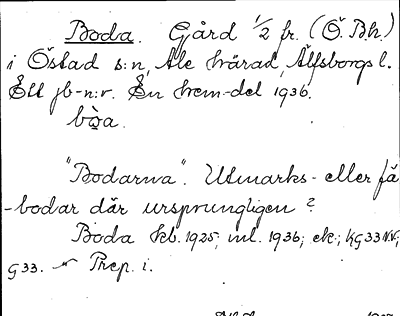 Boda. Gård 1/2 fr. (Ö. Bh.)
i Östad s:n, Ale härad, Älfsborgs l.
Ett jb-n:r. En hem-del 1936.
bọ̀a.
"Bodarna". Utmarks- eller fä
-bodar där ursprungligen?
Boda kb. 1925; ml. 1936; ek.; KG33 N.V.;
G33. Prep. i.